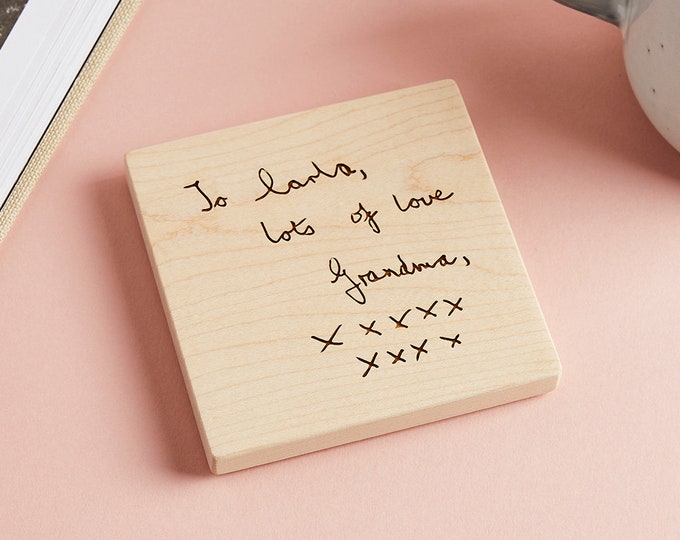 To Carla,
lots of love
Grandma,
X X X X X
X X X X